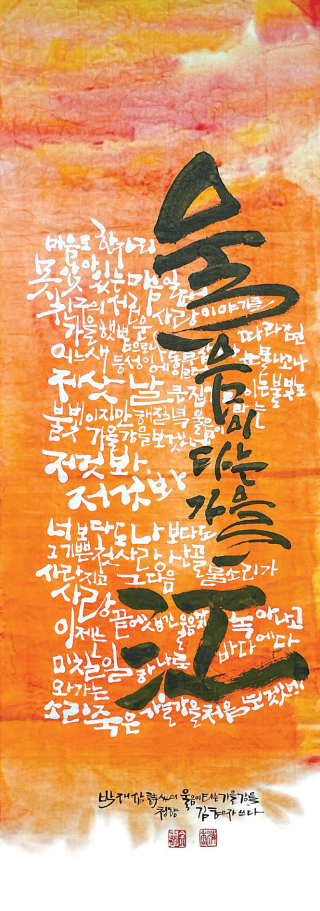 울음이 타는 가을 江
마음도 한자리
못 앉아 있는 마음일 때
친구의 서러운 사랑 이야기를
가을 햇볕으로나 동무삼아 따라가면
어느새 등성이에 이르러 눈물나고나
제삿날 큰집에 모이는 불빛도
불빛이지만 해질녘 울음이 타는
가을강을 보겠네
저것 봐
저것 봐
너보다도 나보다도
그 기쁜 첫사랑 산골 물소리가
사라지고 그 다음
사랑 끝에 생긴 울음까지 녹아나고
이제는
미칠 일 하나로 바다에 다
와 가는
소리 죽은 가을강을 처음 보겠네
박재삼 울음이 타는 가을강을
쓰다